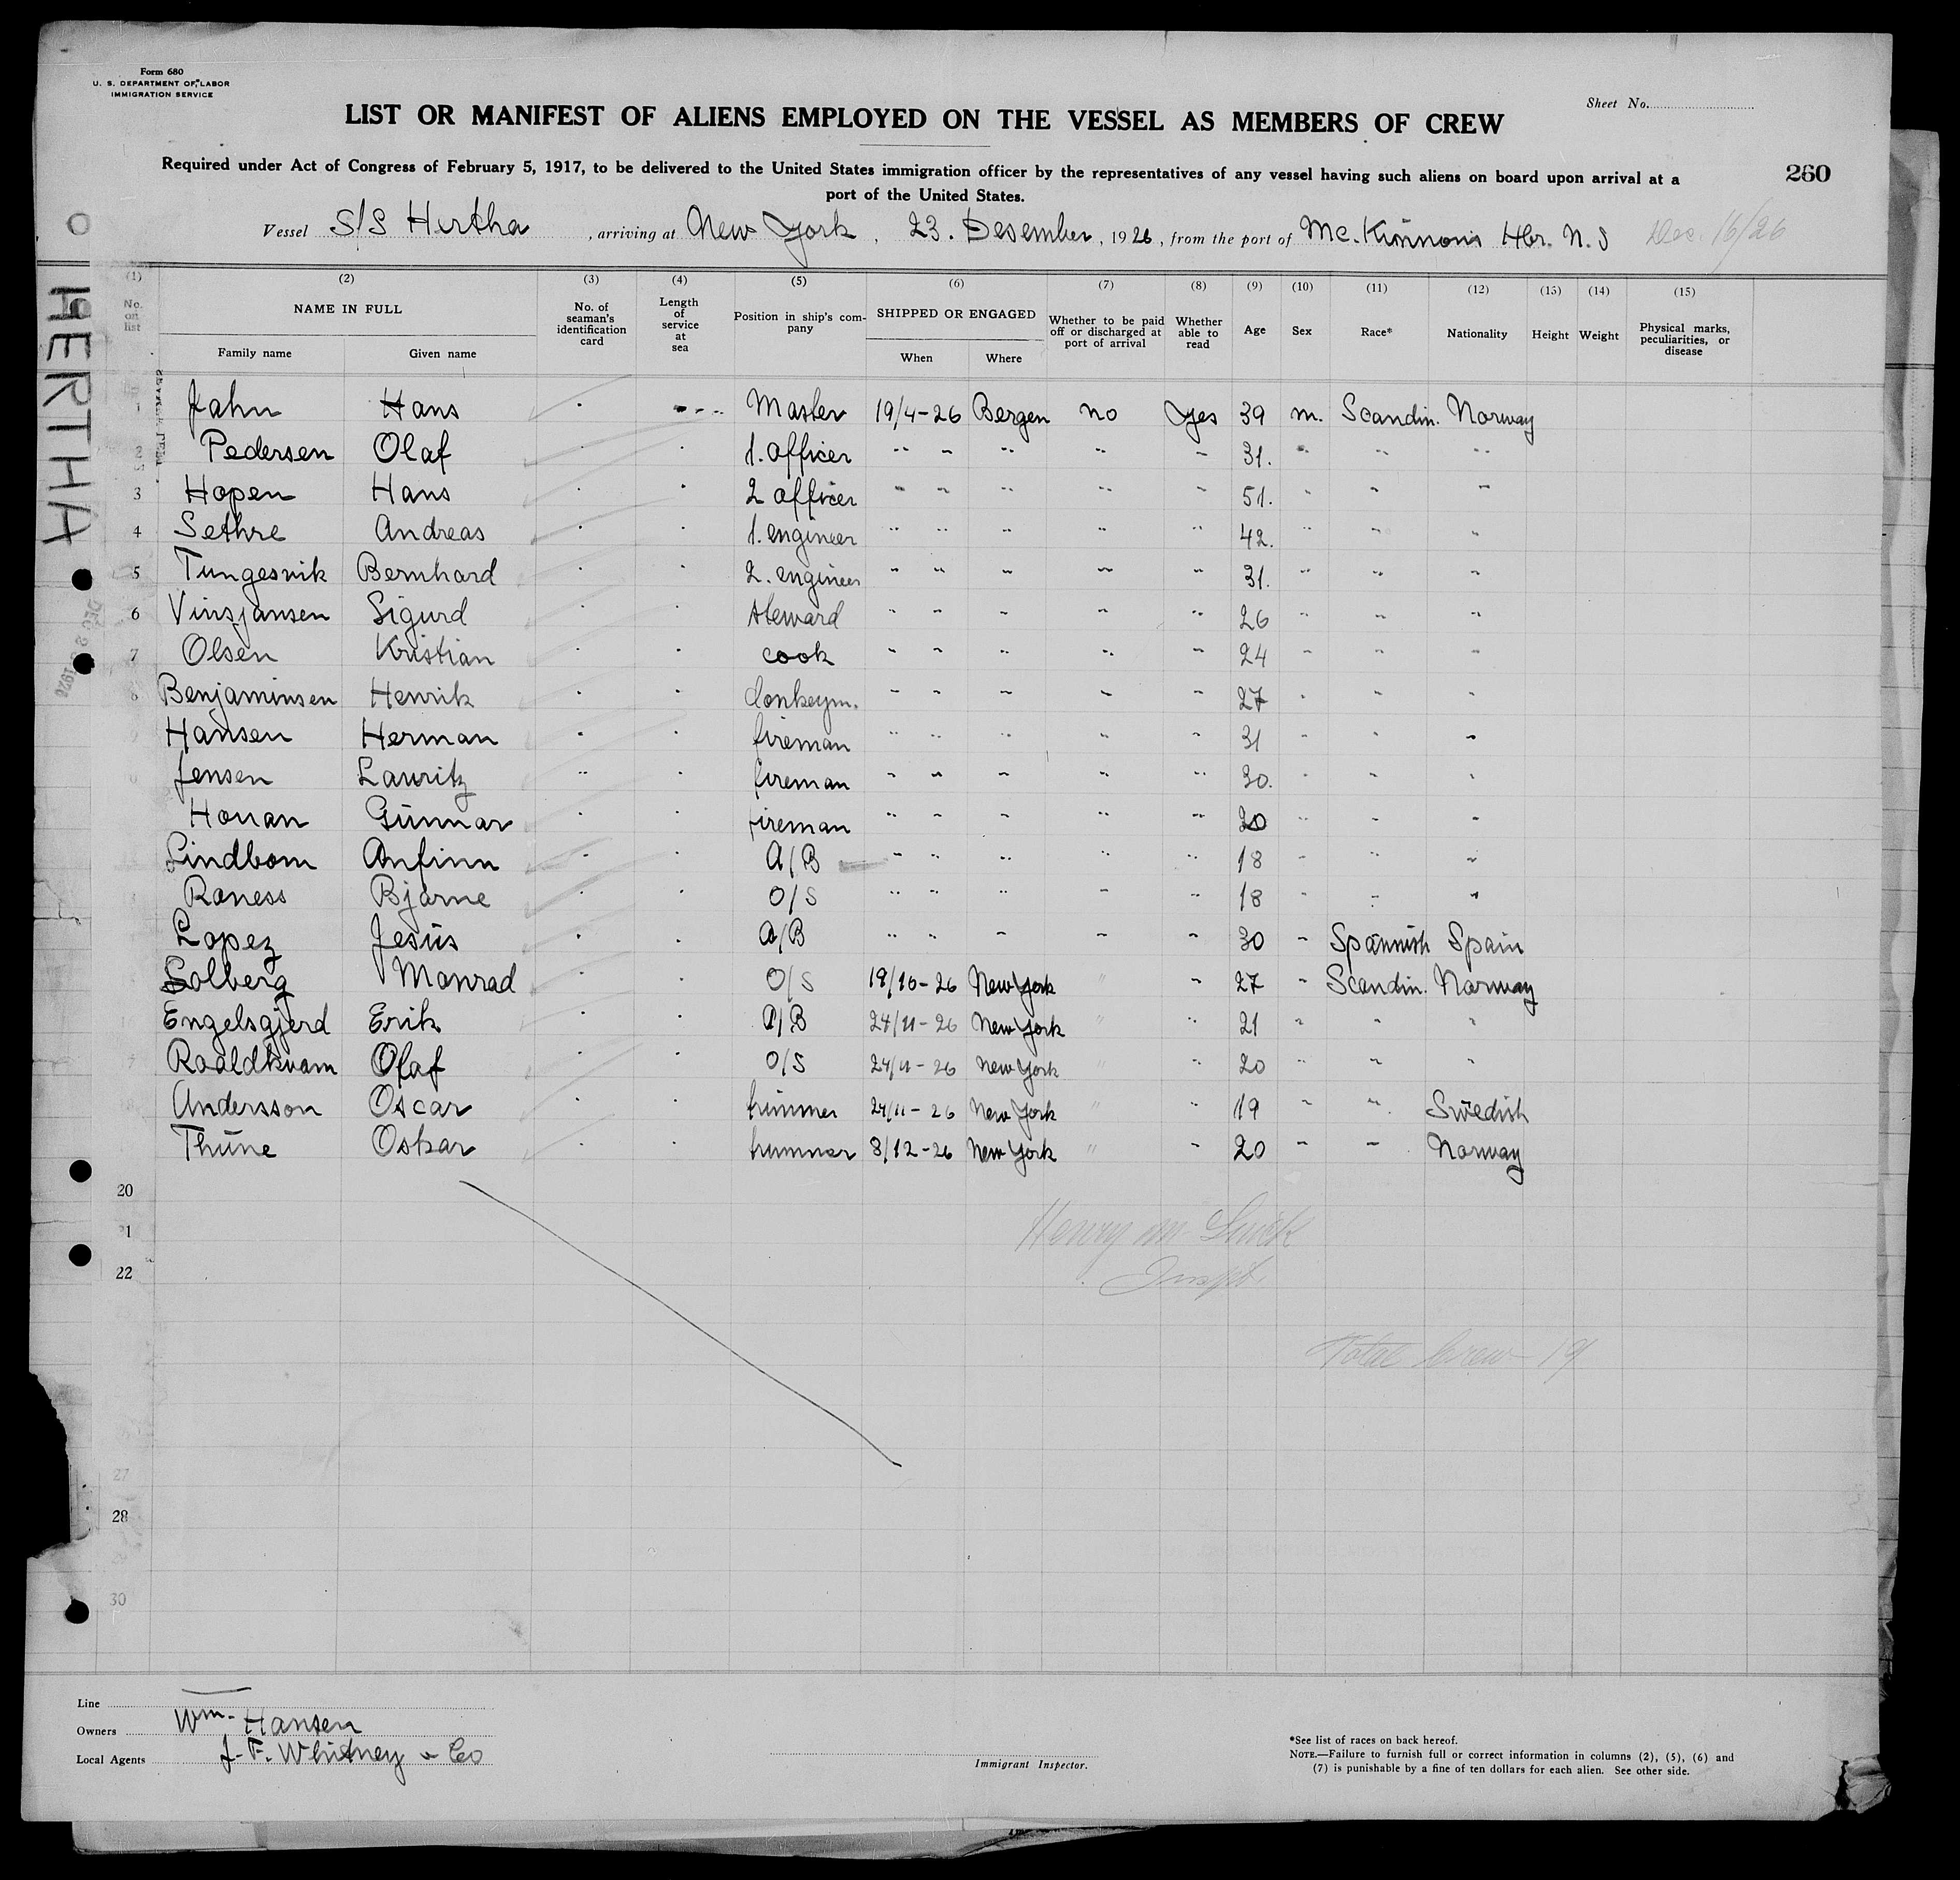 Form 680
U. S. DEPARTMENT OF LABOR
IMMIGRATION SERVICE
Sheet No.
LIST OR MANIFEST OF ALIENS EMPLOYED ON THE VESSEL AS MEMBERS OF CREW
Required under Act of Congress of February 5, 1917, to be delivered to the United States immigration officer by the representatives of any vessel having such aliens on board upon arrival at a
port of the United States.
260
Vessel S/S Hertha, arriving at New York, 23. Desember, 1926, from the port of Mc. Kinnons Hbr. N.S Dec. 16/26
HERTHA
(1) (2) (3) (4) (5) (6) (7) (8) (9) (10) (11) (12) (13) (14) (15)
No. on list NAME IN FULL Family name Given name No. of seaman's identification card Length of service at sea Position in ship's company SHIPPED OR ENGAGED When Where Whether to be paid off or discharged at port of arrival Whether able to read Age Sex Race* Nationality Height Weight Physical marks, peculiarities, or disease
1 Jahn Hans Master 19/4-26 Bergen no Yes 39 m. Scandin. Norway
2 Pedersen Olaf 1. officer " " " " " 31. " " "
3 Hopen Hans 2 officer " " " " " 51. " " "
4 Sethre Andreas 1. engineer " " " " " 42. " " "
5 Tungesvik Bernhard 2. engineer " " " " " 31. " " "
6 Vinsjansen Sigurd steward " " " " " 26 " " "
7 Olsen Kristian cook " " " " " 24 " " "
8 Benjaminsen Henrik donkeym. " " " " " 27 " " "
Hansen Herman fireman " " " " " 31 " " "
Jensen Lauritz fireman " " " " " 30. " " "
Honan Gunnar fireman " " " " " 20 " " "
Lindbom Anfinn A/B " " " " " 18 " " "
Raness Bjarne O/S " " " " " 18 " " "
Lopez Jesús A/B " " " " " 30 " Spannish Spain
Solberg Monrad O/S 19/10-26 New York " " 27 " Scandin. Norway
Engelsgjerd Erik A/B 24/11-26 New York " " 21 " " "
Roaldkvam Olaf O/S 24/11-26 New York " " 20 " " "
Andersson Oscar trimmer 24/11-26 New York " " 19 " " Swedish
Thune Oskar trimmer 8/12-26 New York " " 20 " " Norway
20
21
22
Total Crew 19
27
28
30
Line
Owners Wm. Hansen
Local Agents J. F. Whitney & Co
Immigrant Inspector.
*See list of races on back hereof.
NOTE.—Failure to furnish full or correct information in columns (2), (5), (6) and
(7) is punishable by a fine of ten dollars for each alien. See other side.